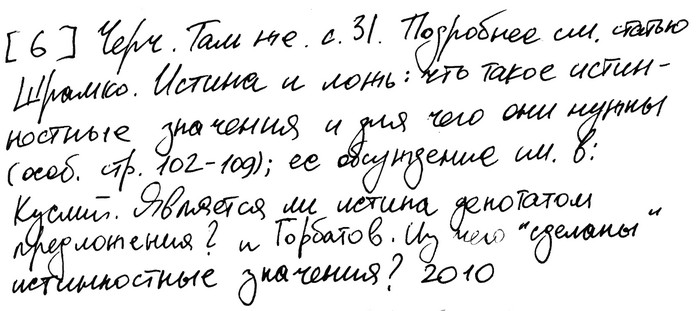 [6] Черч. Там же. с. 31. Подробнее см. статью
Шрамко. Истина и ложь: что такое истин-
ностные значения и для чего они нужны
(особ. стр. 102-109); ее обсуждение см. в:
Куслий. Является ли истина денотатом
предложения? и Горбатов. Из чего "сделаны"
истинностные значения? 2010